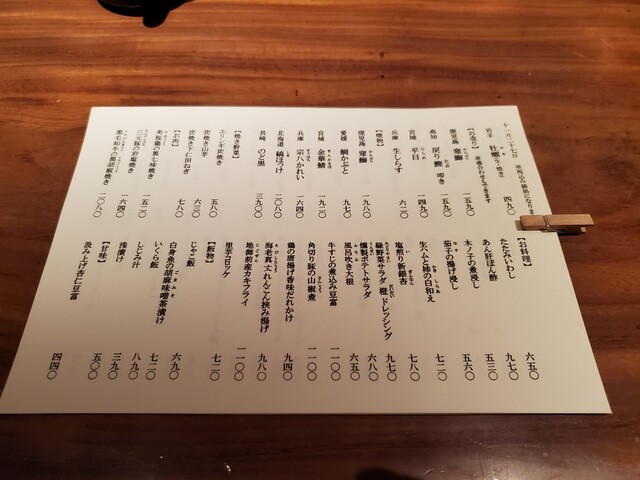 十一月二十七日 ※税込み価格になりま
岩手 牡蠣(生・焼き) 四九〇
【お造り】 ※盛合わせもできます
鹿児島 寒鰤 一五九〇
高知 戻り鰹 叩き 一五九〇
宮城 平目 一四九〇
兵庫 生しらす 六二〇
【焼物】
鹿児島 寒鰤 一九八〇
愛媛 鯛かぶと 九七〇
宮城 金華鯖 一九二〇
兵庫 宗八かれい 一六四〇
北海道 縞ほっけ 二〇八〇
長崎 のど黒 三九〇〇
【焼き野菜】
エリンギ炭焼き 五八〇
炭焼き山芋 六三〇
炭焼き下仁田ねぎ 七八〇
【お肉】
美桜鶏の黒七味焼き 一五二〇
三元豚の岩塩焼き 一六四〇
黒毛和牛の黒胡椒焼き 二〇八〇
【お料理】
たたみいわし 六五〇
あん肝ぽん酢 九七〇
木ノ子の煮浸し 五三〇
茄子の揚げ浸し 五六〇
生ハムと柿の白和え 七二〇
塩煎り新銀杏 七八〇
緑野菜サラダ 橙ドレッシング 九七〇
燻製ポテトサラダ 六八〇
風呂吹き大根 六五〇
牛すじの煮込み豆富 一一〇〇
角切り豚の山椒煮 一一〇〇
鶏の唐揚げ香味だれかけ 九四〇
海老真丈れんこん挟み揚げ 九八〇
地御前産カキフライ 一一〇〇
里芋コロッケ 七二〇
【飯物】
じゃこ飯 六九〇
白身魚の胡麻味噌茶漬け 七二〇
いくら飯 八九〇
しじみ汁 三九〇
浅漬け 五〇〇
【甘味】
汲み上げ杏仁豆富 四四〇